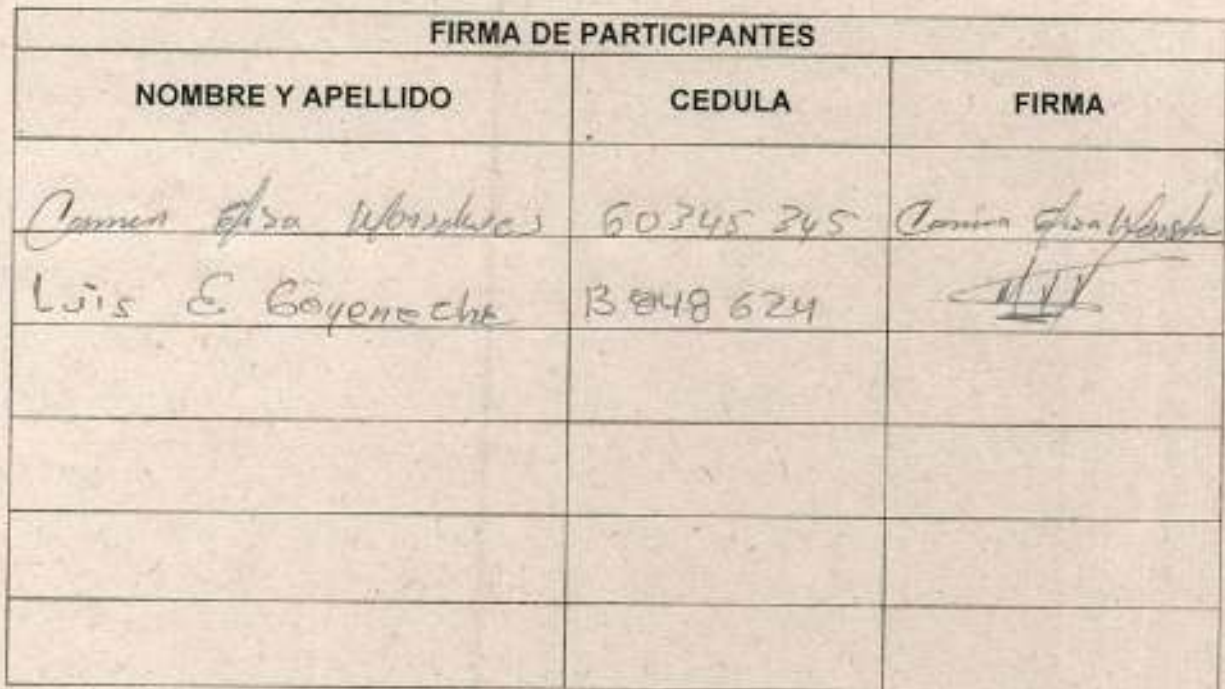 FIRMA DE PARTICIPANTES
NOMBRE Y APELLIDO CEDULA FIRMA
Carmen Elisa 60345 345 Carmen Elisa
Luis E Goyeneche 13 848 624